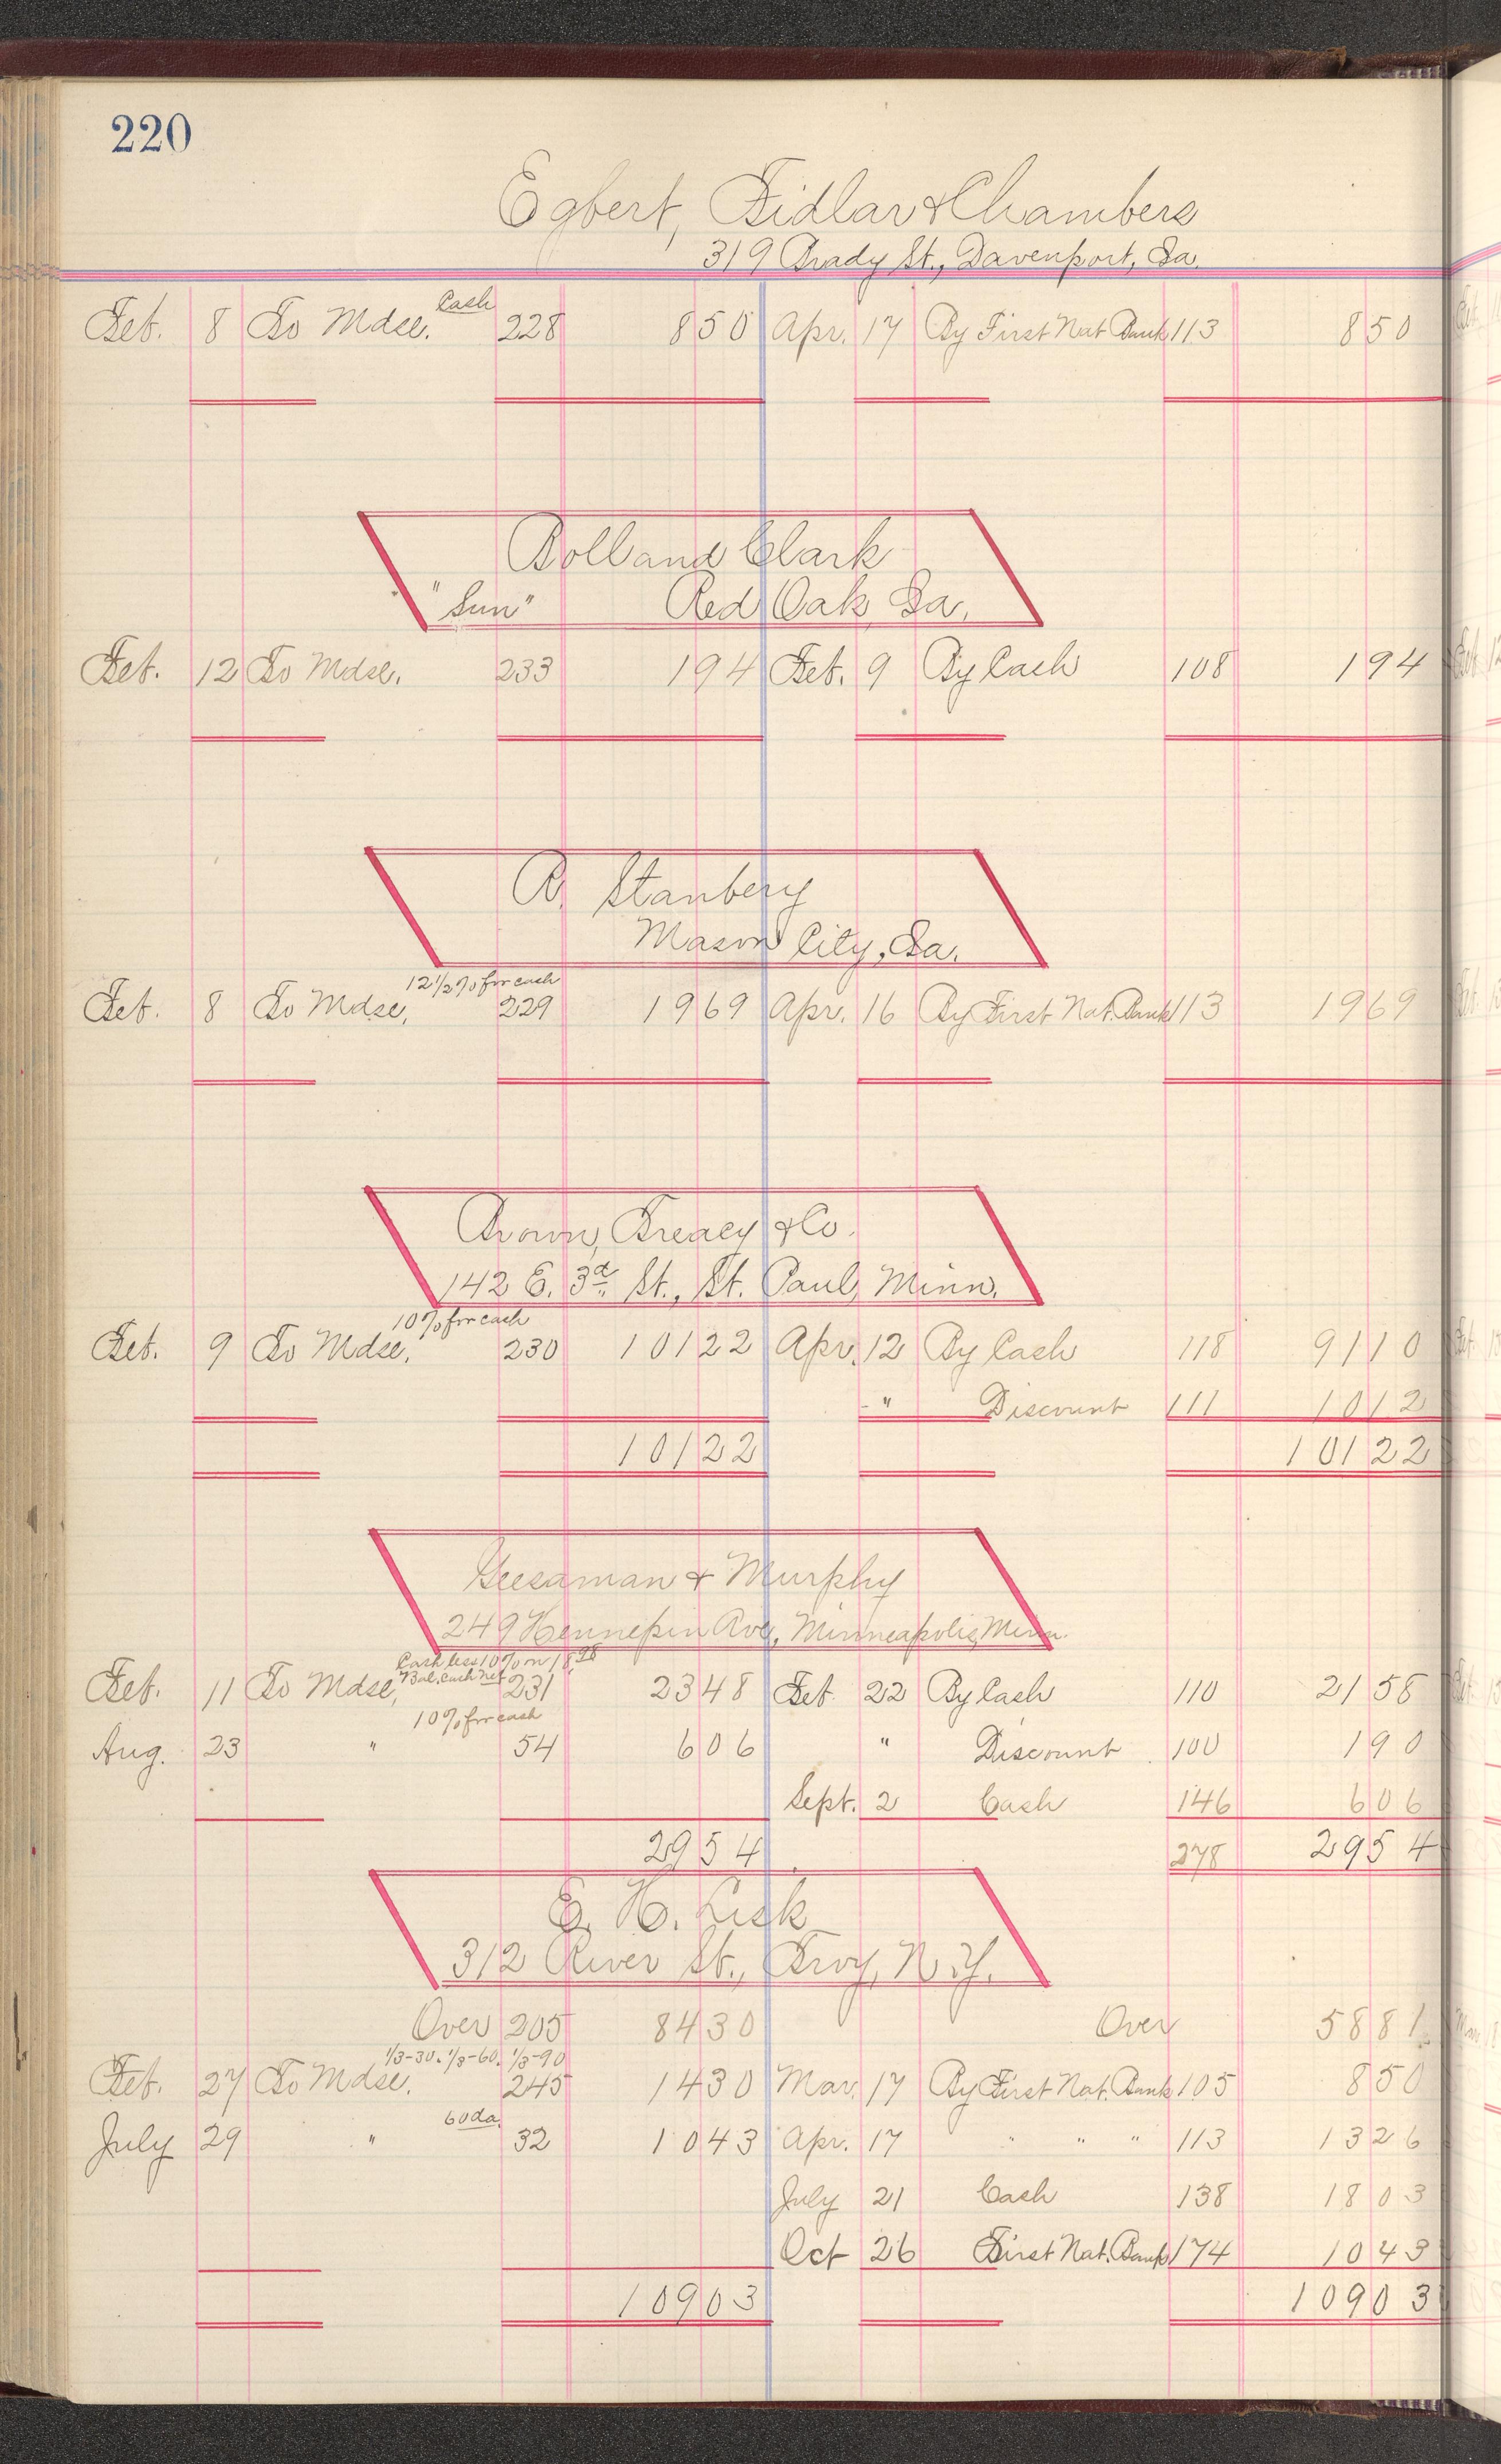 220
Egbert, Fidlar & Chambers
319 Brady St., Davenport, Ia.
Cash
Feb. 8 To Mdse. 228 850 Apr. 17 By First Nat Bank 113 850
Rolland Clark
"Sun" Red Oak, Ia.
Feb. 12 To Mdse. 233 194 Feb. 9 By Cash 108 194
A. Stanbery
Mason City, Ia.
12 1/2% for cash
Feb. 8 To Mdse, 229 1969 Apr. 16 By First Nat. Bank 113 1969
Brown, Treacy & Co.
142 E. 3d. St., St. Paul, Minn.
10% for cash
Feb. 9 To Mdse. 230 10122 Apr. 12 By Cash 118 9110
" Discount 111 1012
10122 10122
Geesaman & Murphy
249 Hennepin Ave, Minneapolis, Minn.
Cash less 10% on 18.98
Bal. cash net
Feb. 11 To Mdse, 231 2348 Feb 22 By Cash 110 2158
10% for cash
Aug. 23 " 54 606 " Discount 100 190
Sept. 2 Cash 146 606
2954 278 2954
E. H. Lisk
312 River St., Troy, N.Y.
Over 205 8430 Over 5881
1/3-30. 1/3-60. 1/3-90
Feb. 27 To Mdse. 245 1430 Mar. 17 By First Nat. Bank 105 850
60 da.
July 29 " 32 1043 Apr. 17 " " " 113 1326
July 21 Cash 138 1803
Oct 26 First Nat. Bank 174 1043
10903 10903